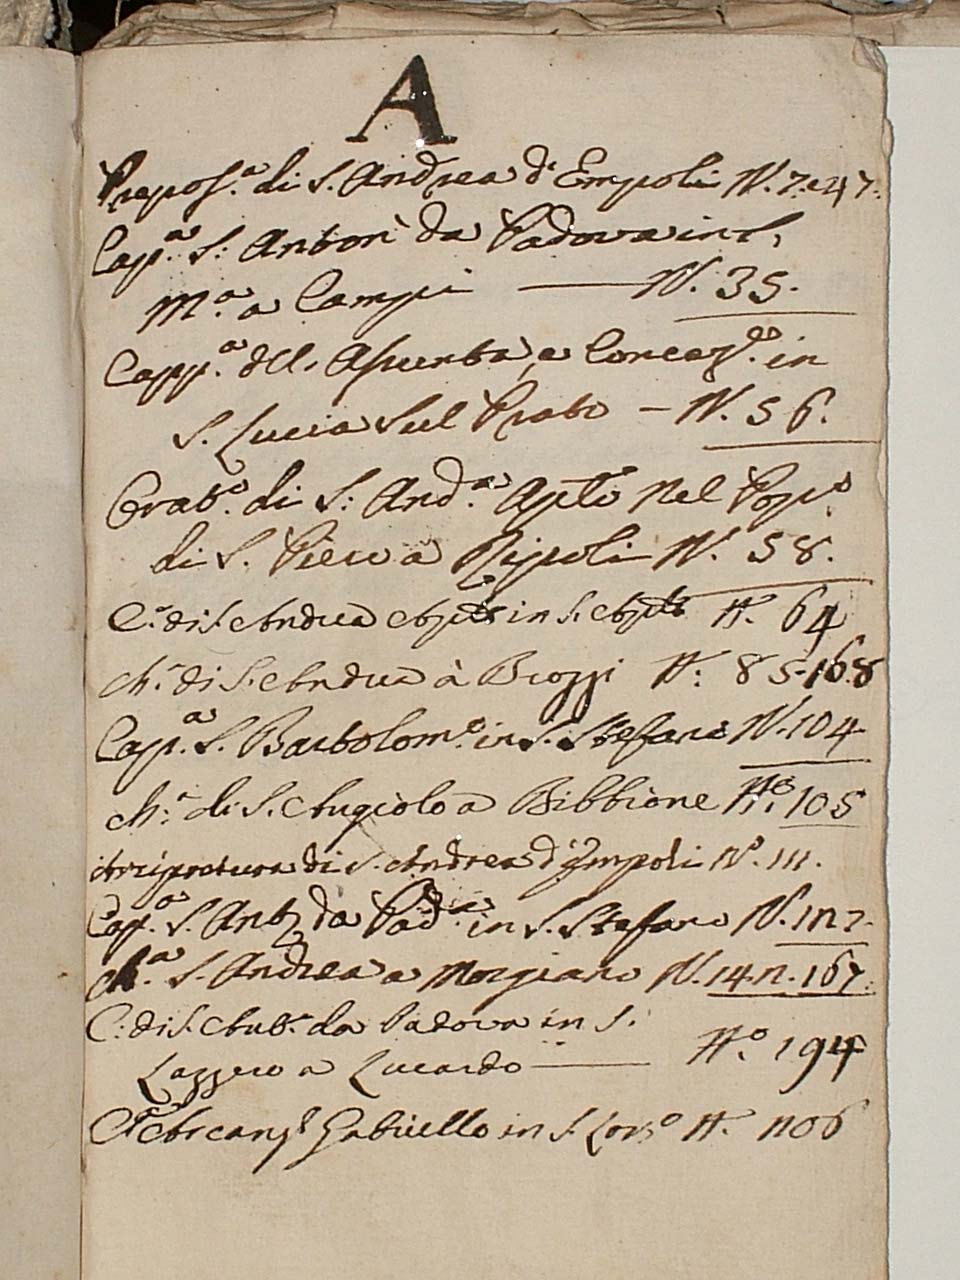 A
Prepos.a di S. Andrea d' Empoli N. 7. e 47.
Capp.a S. Anton da Padova in S.
M.a a Campi — N. 35.
Capp.a dell. Assunta, e Concez.e in
S. Lucia sul Prato — N. 56.
Orat.o di S. And.a Ap.lo nel Pop.o
di S. Piero a Ripoli N. 58.
C. di S. Andrea in S. N. 64
Ch. di S. Andrea à Brozzi N. 85. 168
Capp.a S. Bartolom.o in S. Stefano N. 104
Ch.a di S. Angiolo a Bibbione N.o 105
Arcipretura di S. Andrea d' Empoli N.o 111.
Capp.a S. Ant. da Pad.a in S. Stefano N.
Ch.a S. Andrea a Morgiano N. 167.
C. di S. Ant.o da Padova in S.
Lazzero a Lucardo — N.o 194
Gabriello in S. Lor.o N.